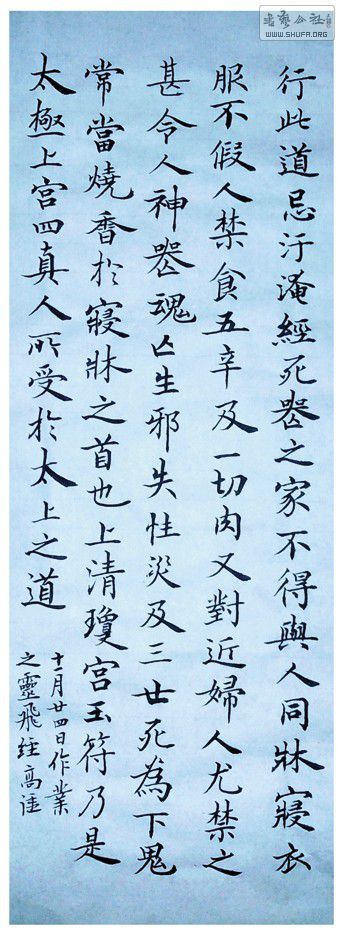 行此道忌汙淹經死喪之家不得與人同牀寢衣
服不假人禁食五辛及一切肉又對近婦人尤禁之
甚令人神喪魂亡生邪失性災及三世死為下鬼
常當燒香於寢牀之首也上清瓊宮玉符乃是
太極上宮四真人所受於太上之道
十一月廿四日作業
之靈飛經高
WWW.SHUFA.ORG